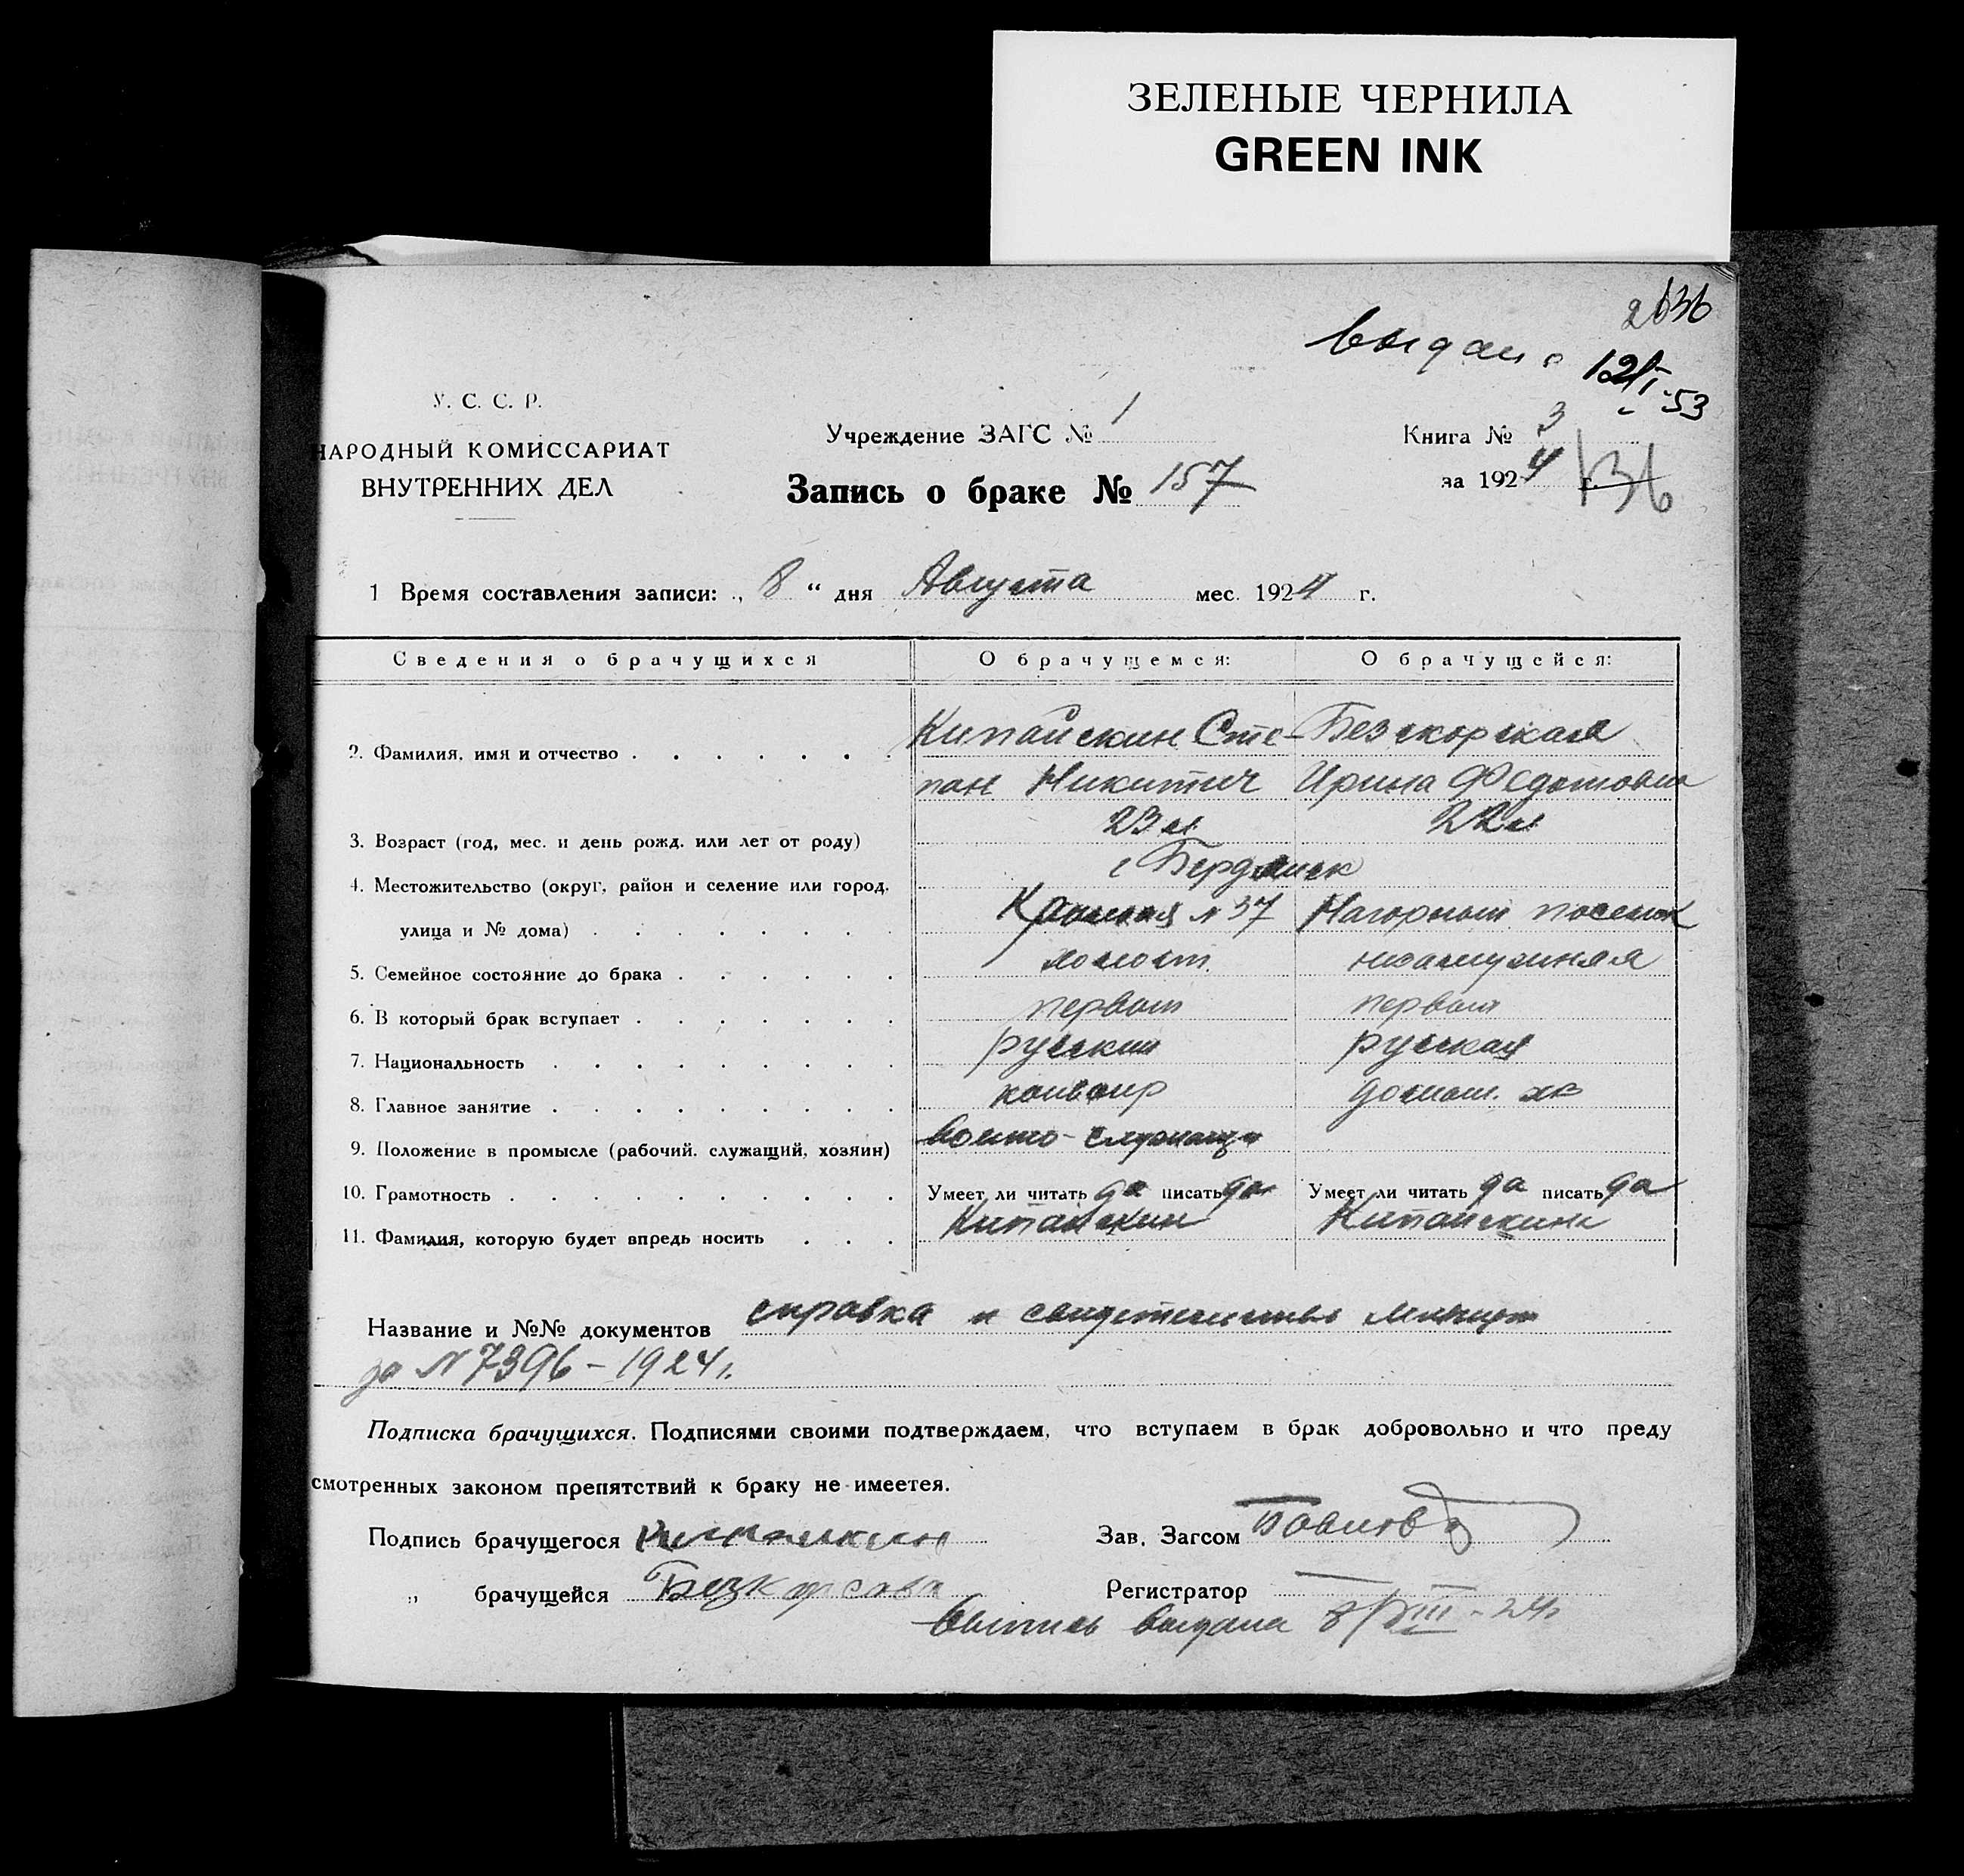 ЗЕЛЕНЫЕ ЧЕРНИЛА
GREEN INK
136
выдано
12/I-53
У. С. С. Р.
НАРОДНЫЙ КОМИССАРИАТ
ВНУТРЕННИХ ДЕЛ
Учреждение ЗАГС № 1
Запись о браке № 157
Книга № 3
за 1924 г.
136
1 Время составления записи: „ 8 “ дня Августа мес. 1924 г.
Сведения о брачущихся О брачущемся: О брачущейся:
2. Фамилия, имя и отчество Китайскин Сте- Безкорская
пан Никитич Ирина Федотовна
3. Возраст (год, мес. и день рожд. или лет от роду) 23 л 22 л
4. Местожительство (округ, район и селение или город, г Бердянск
улица и № дома) № 37 Нагорный поселок
5. Семейное состояние до брака холост незамужняя
6. В который брак вступает первый первый
7. Национальность русский русская
8. Главное занятие конвоир домаш. хоз
9. Положение в промысле (рабочий, служащий, хозяин) Военно-служащи
10. Грамотность Умеет ли читать да писать да Умеет ли читать да писать да
11. Фамилия, которую будет впредь носить Китайскин Китайскина
Название и №№ документов справка и свидетельство милиции
за № 7396 – 1924 г.
Подписка брачущихся. Подписями своими подтверждаем, что вступаем в брак добровольно и что преду
смотренных законом препятствий к браку не имеетея.
Подпись брачущегося Китайскин Зав. Загсом
„ брачущейся Регистратор
Выпись выдана 8/VIII-24 г